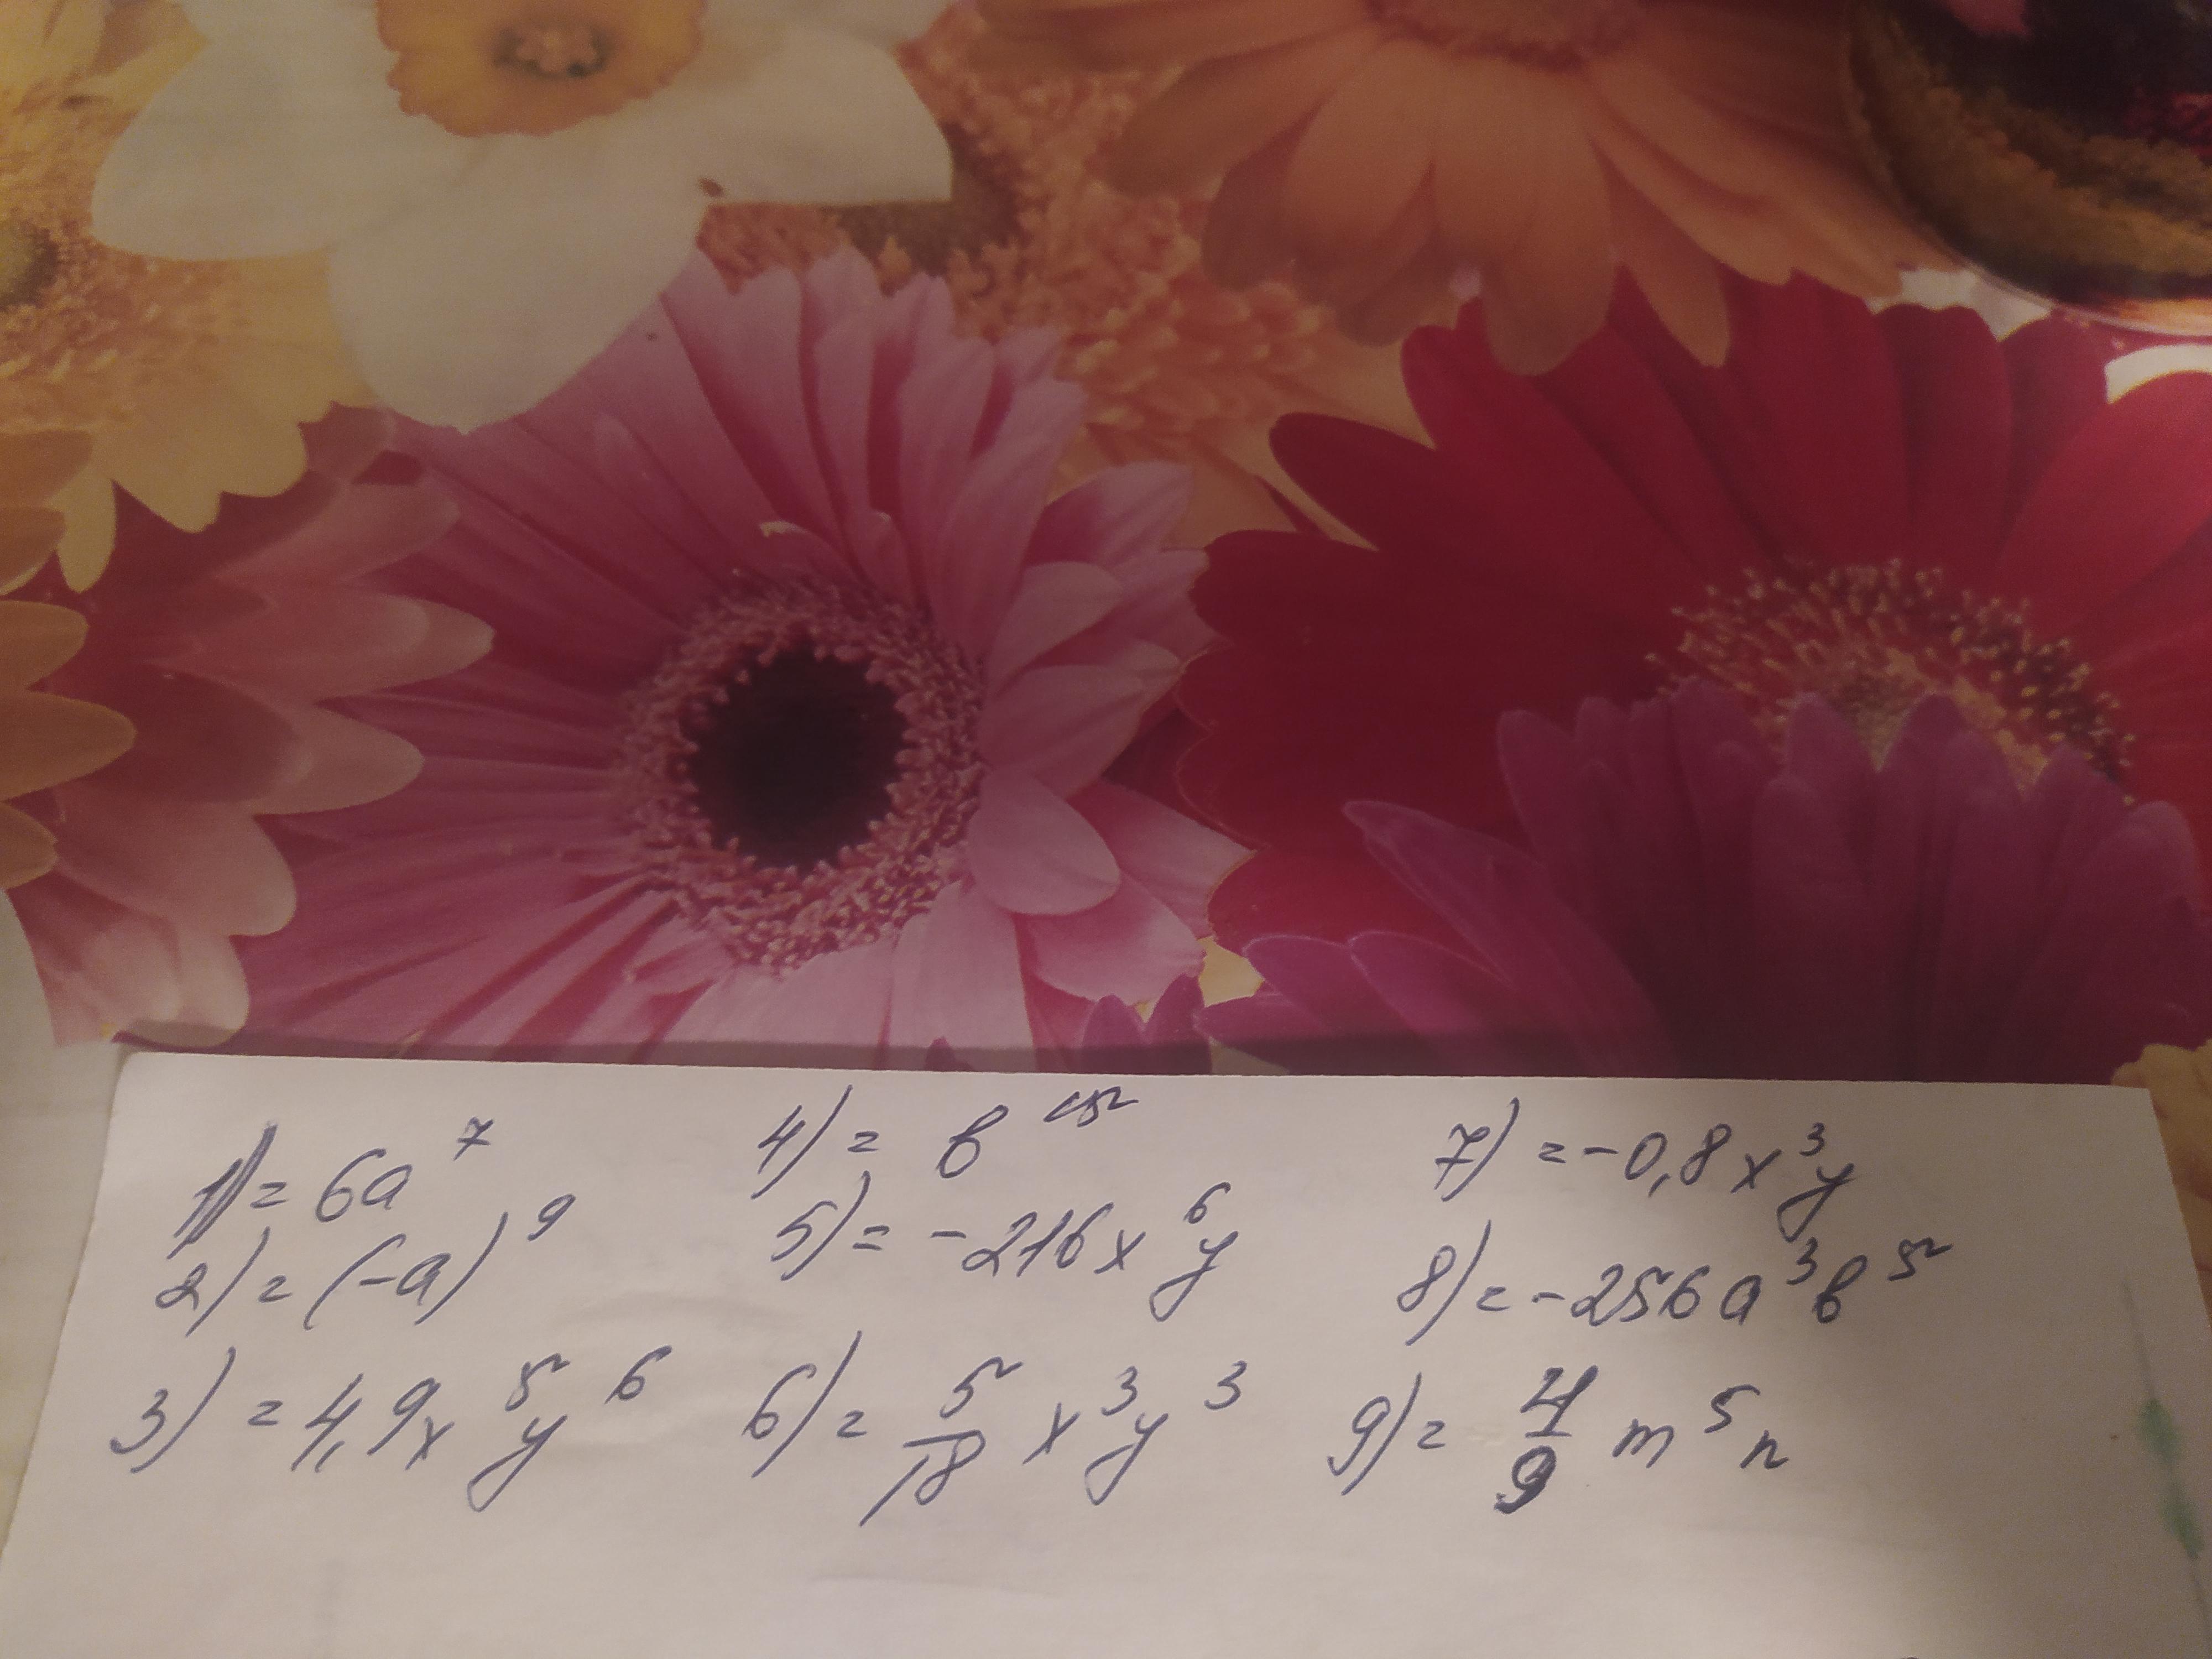 1) = 6a⁷
2) = (-a)⁹
3) = 4,9x⁵y⁶
4) = b
5) = -216x⁶y
6) = 5/18 x³y³
7) = -0,8x³y
8) = -256a³b⁵
9) = 4/9 m⁵n